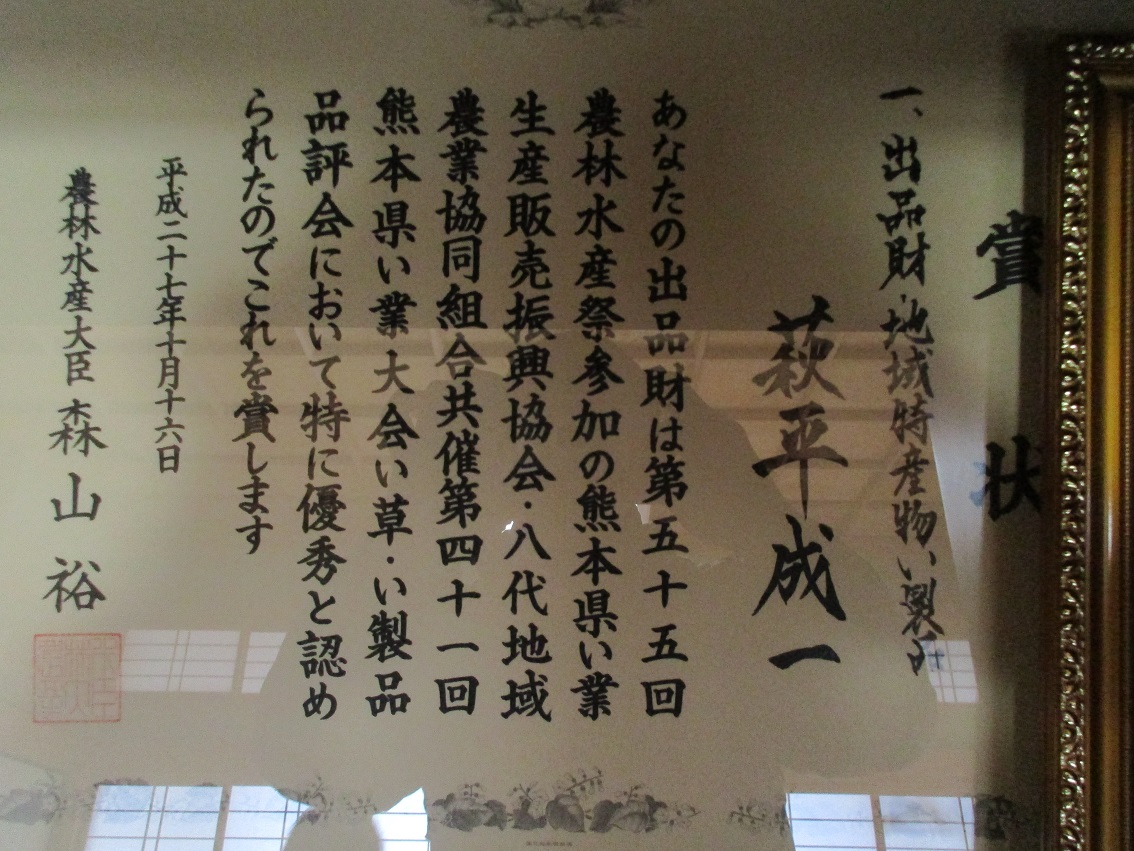 賞状
一、出品財・地域特産物い製品
萩平成一
あなたの出品財は第五十五回
農林水産祭参加の熊本県い業
生産販売振興協会・八代地域
農業協同組合共催第四十一回
熊本県い業大会い草・い製品
品評会において特に優秀と認め
られたのでこれを賞します
平成二十七年十月十六日
農林水産大臣 森山裕